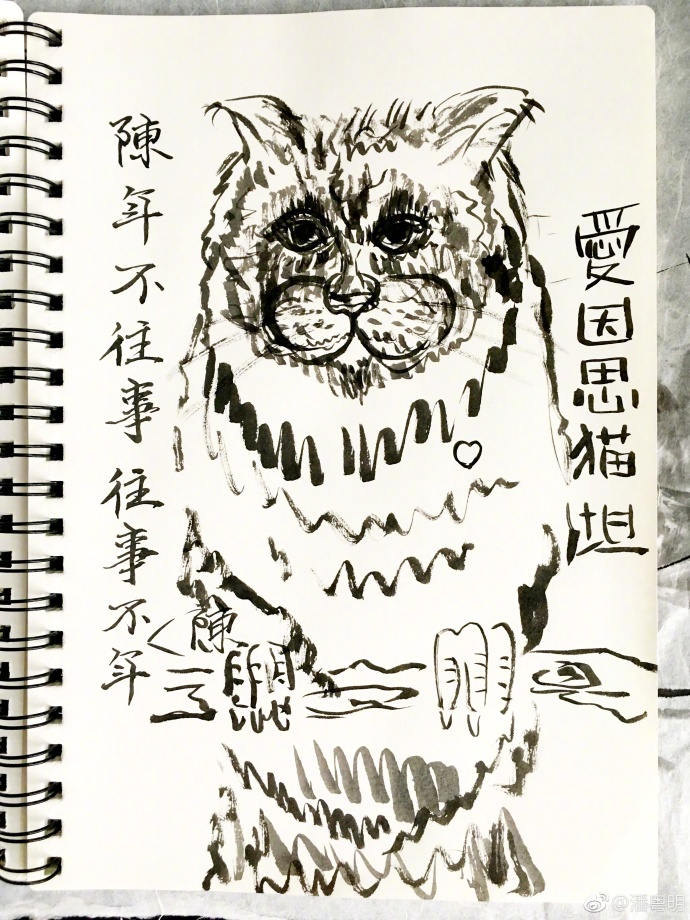 愛因思猫坦
陳年不往事往事不陳年
@潘粤明